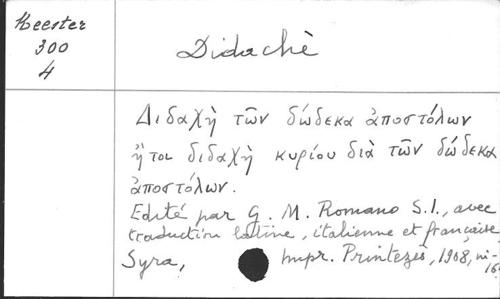 Meester
300
4
Didachè
Διδαχὴ τῶν δώδεκα ἀποστόλων
ἤτοι διδαχὴ κυρίου διὰ τῶν δώδεκα
ἀποστόλων.
Edité par G. M. Romano S.I., avec
traduction latine, italienne et française
Syra, Impr. Printezis, 1908, in-
16